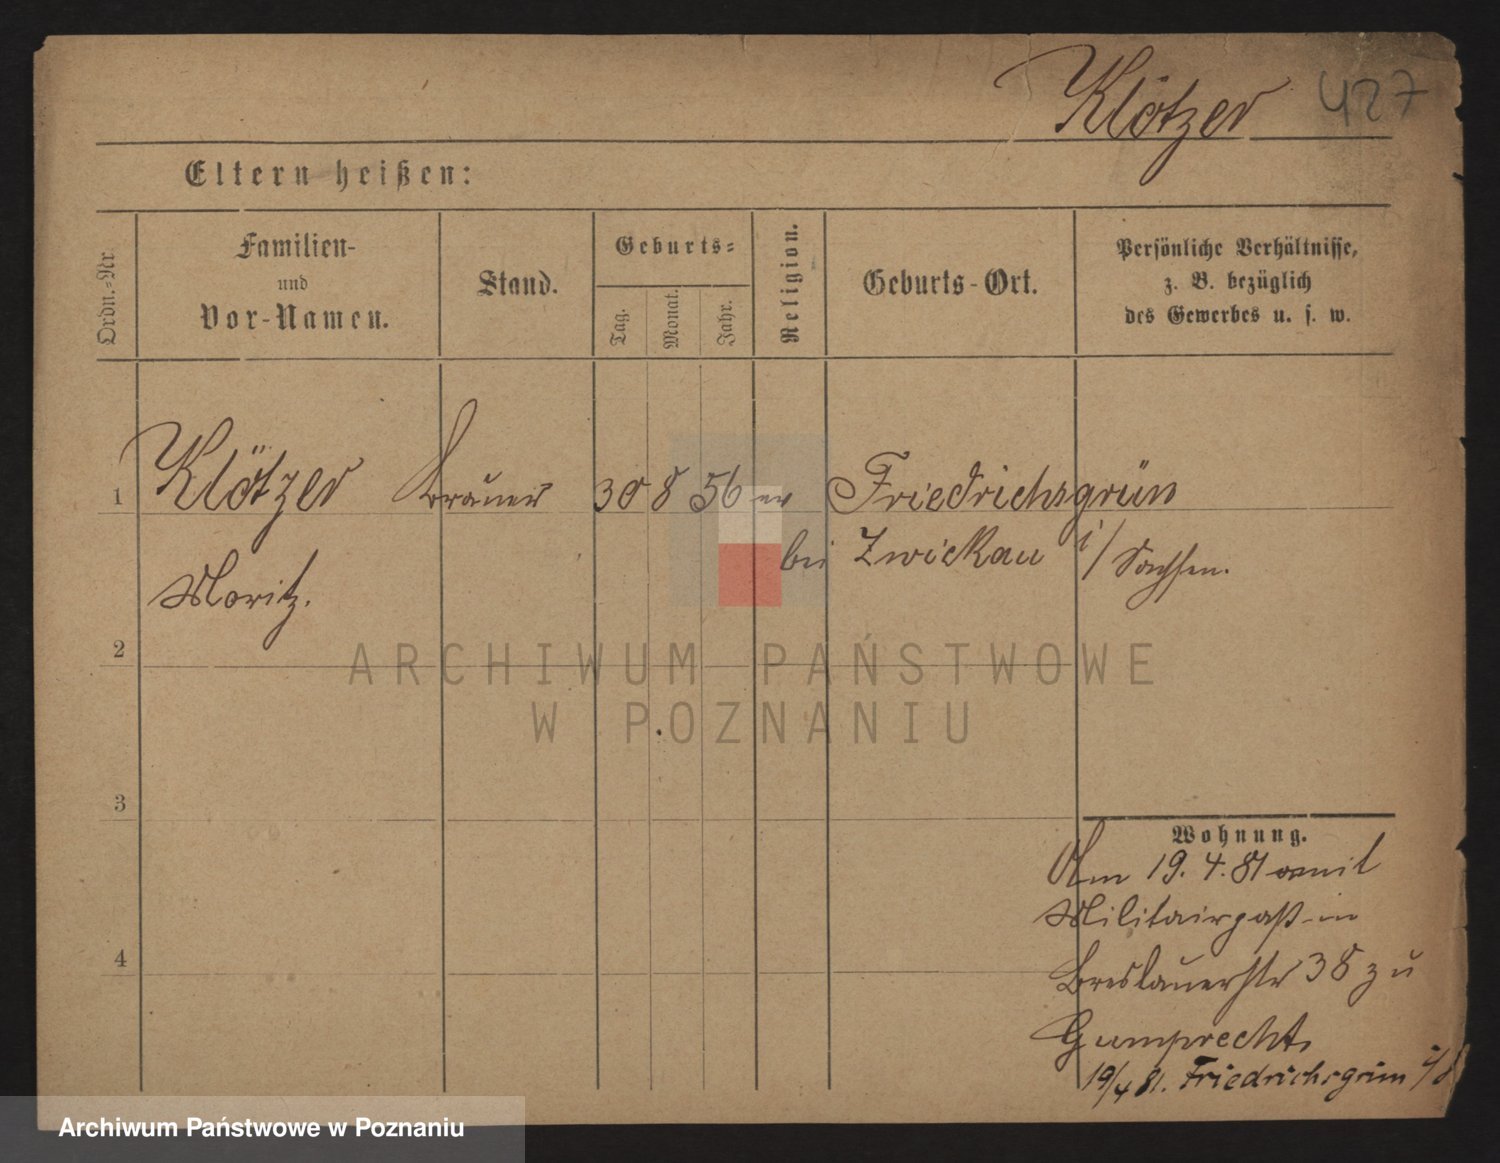 Klötzer 427
Eltern heißen:
Ordn.-Nr.
Familien-
und
Vor-Namen.
Stand.
Geburts-
Tag.
Monat.
Jahr.
Religion.
Geburts-Ort.
Persönliche Verhältnisse,
z. B. bezüglich
des Gewerbes u. s. w.
1 Klötzer Brauer 30 8 56 ev Friedrichsgrün
bei Zwickau i/ Sachsen.
Moritz.
2
ARCHIWUM PAŃSTWOWE
W POZNANIU
3
Wohnung.
Am 19. 4. 81 mit
Militairpaß in
4
Breslauerstr 38 zu
Gumprecht
19/4 81. Friedrichsgrün
Archiwum Państwowe w Poznaniu